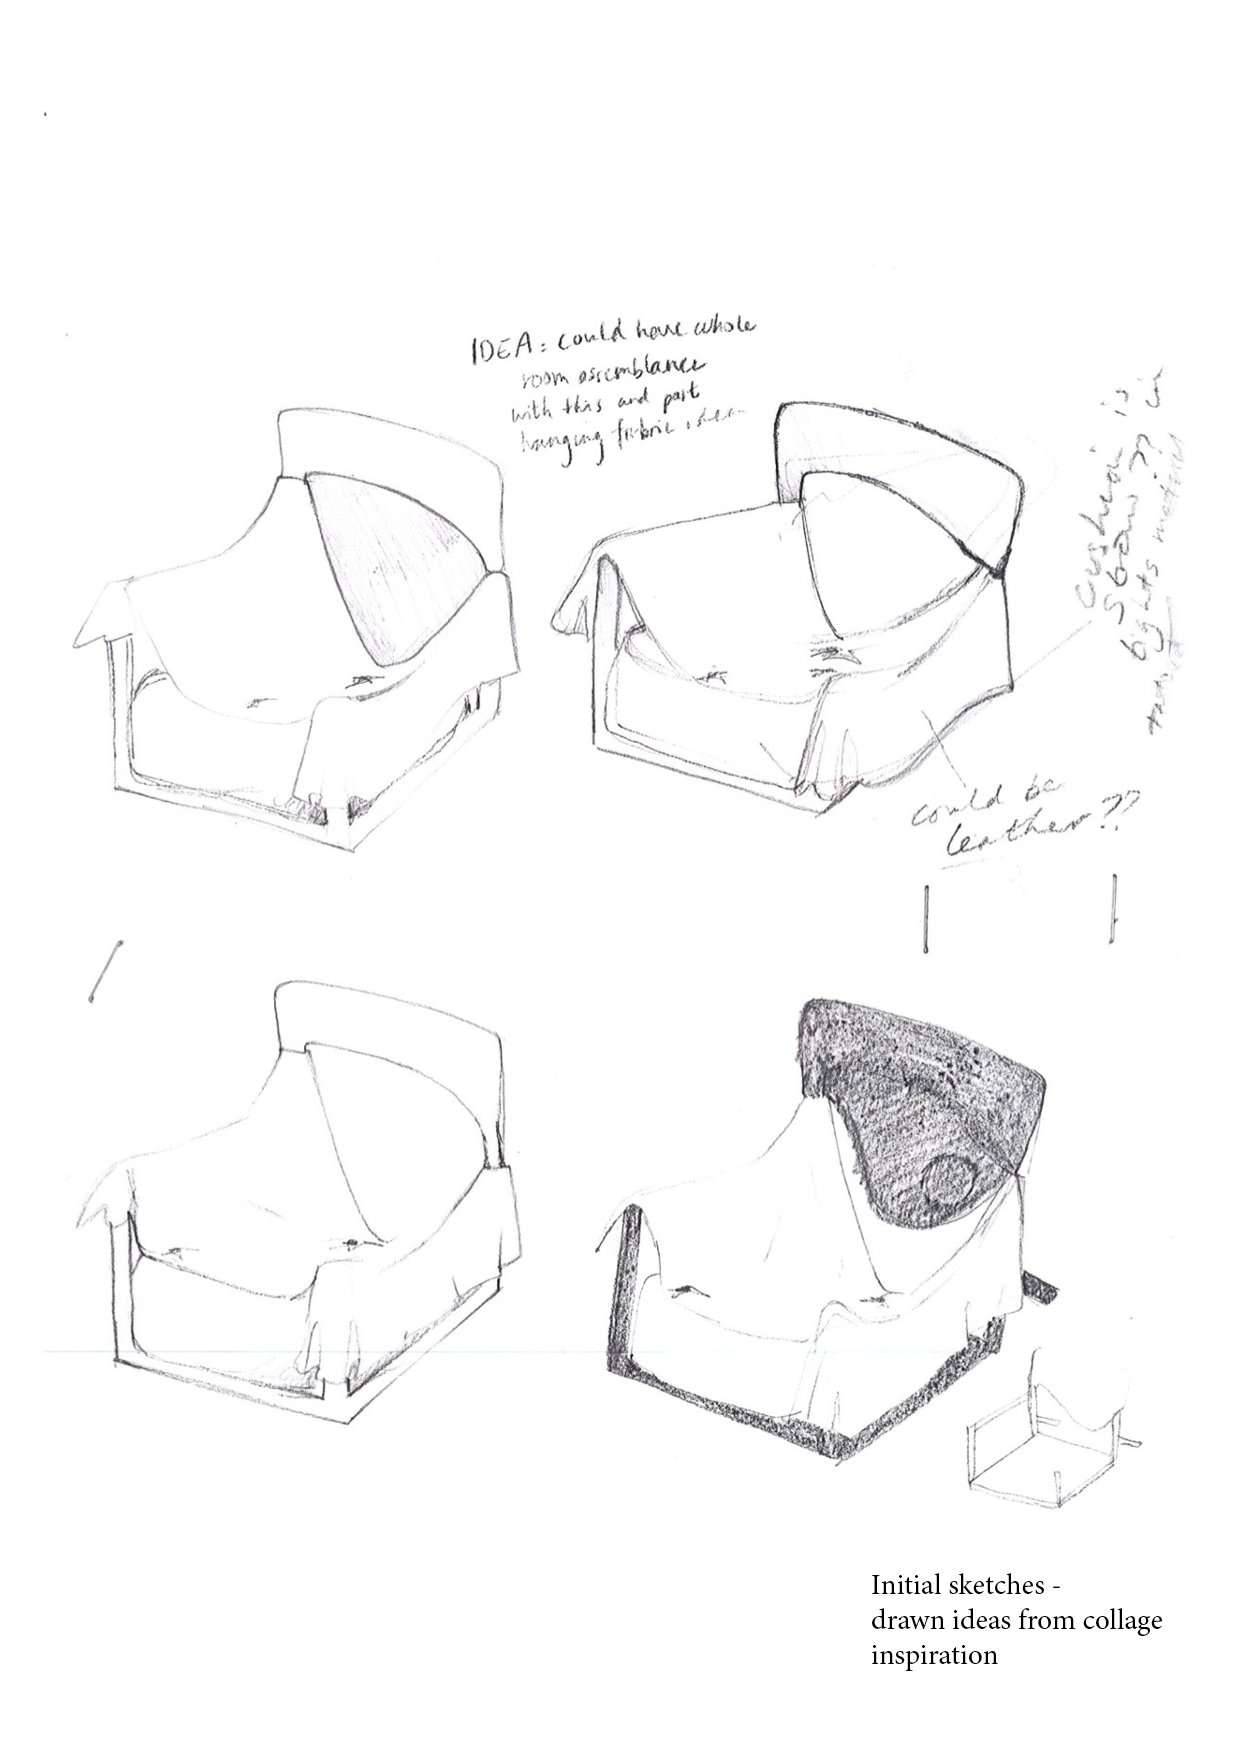 IDEA: could have whole
room assemblance
with this and part
hanging fabric idea
Cushion is
foam?? in
tights material
could be
leather??
Initial sketches -
drawn ideas from collage
inspiration